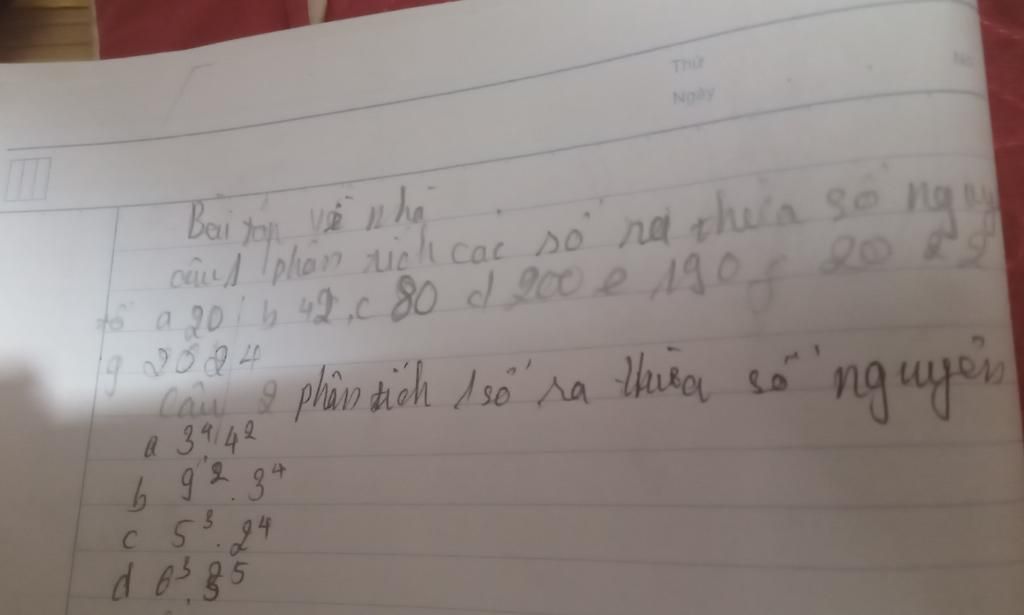 Thứ
No
Ngày
Bài tập về nhà
câu 1 phân tích các số ra thừa số nguy
tố a 20 b 42, c 80 d 200 e 190 f 20 22
g 2024
Câu 2 phân tích 1 số ra thừa số nguyên
a 3⁴.4²
b 9².3⁴
c 5³.2⁴
d 6³.